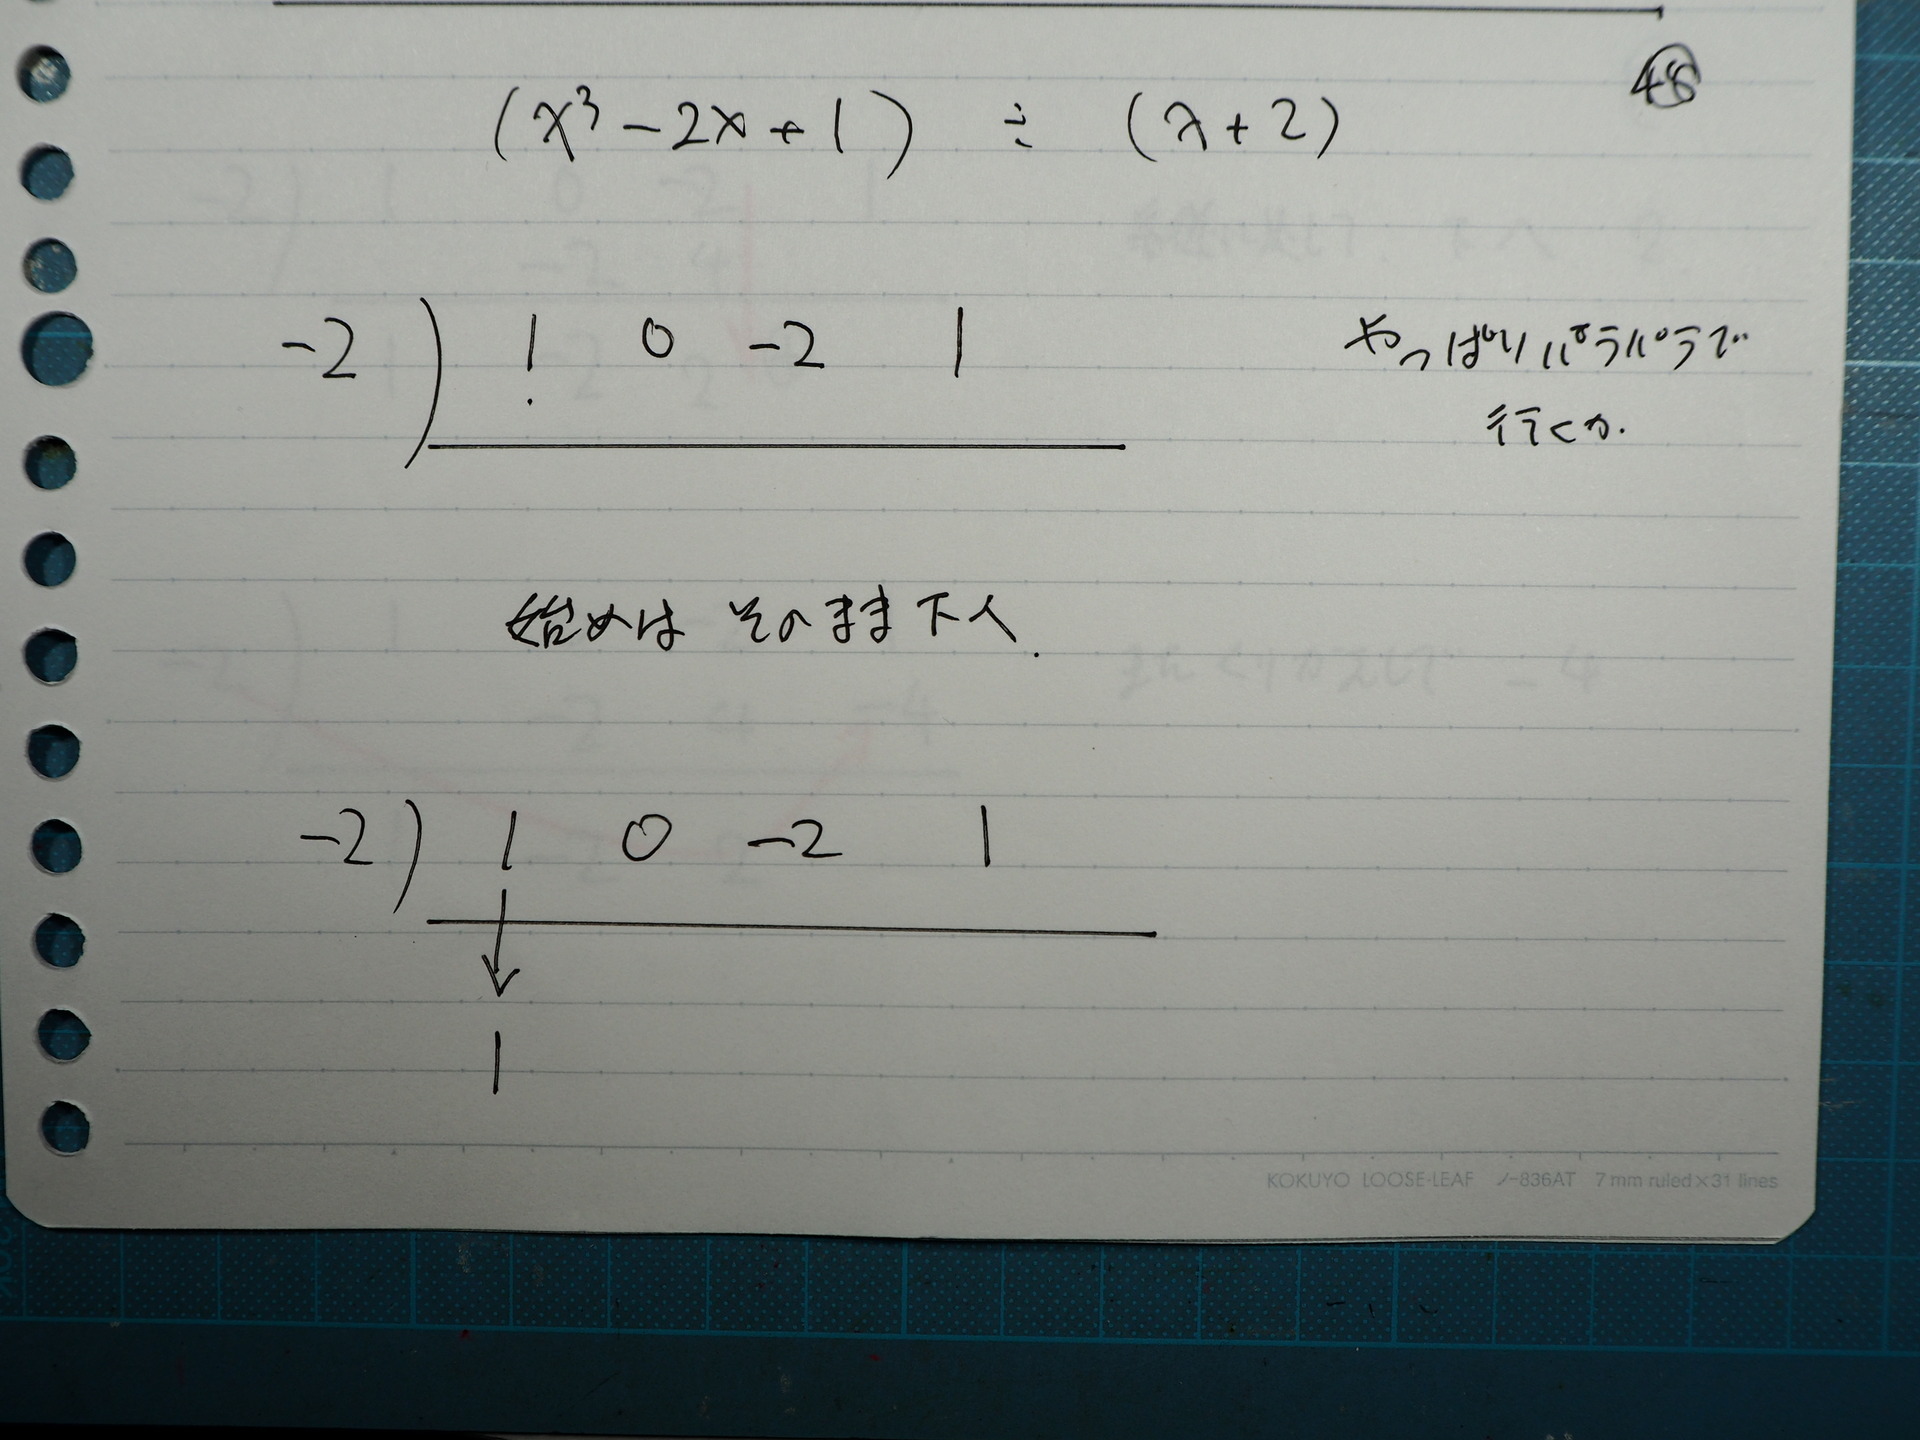 48
(x³ - 2x + 1) ÷ (x + 2)
-2) 1 0 -2 1
やっぱりパラパラで
行くか.
始めは そのまま下へ.
-2) 1 0 -2 1
1
KOKUYO LOOSE-LEAF ノ-836AT 7mm ruled×31 lines